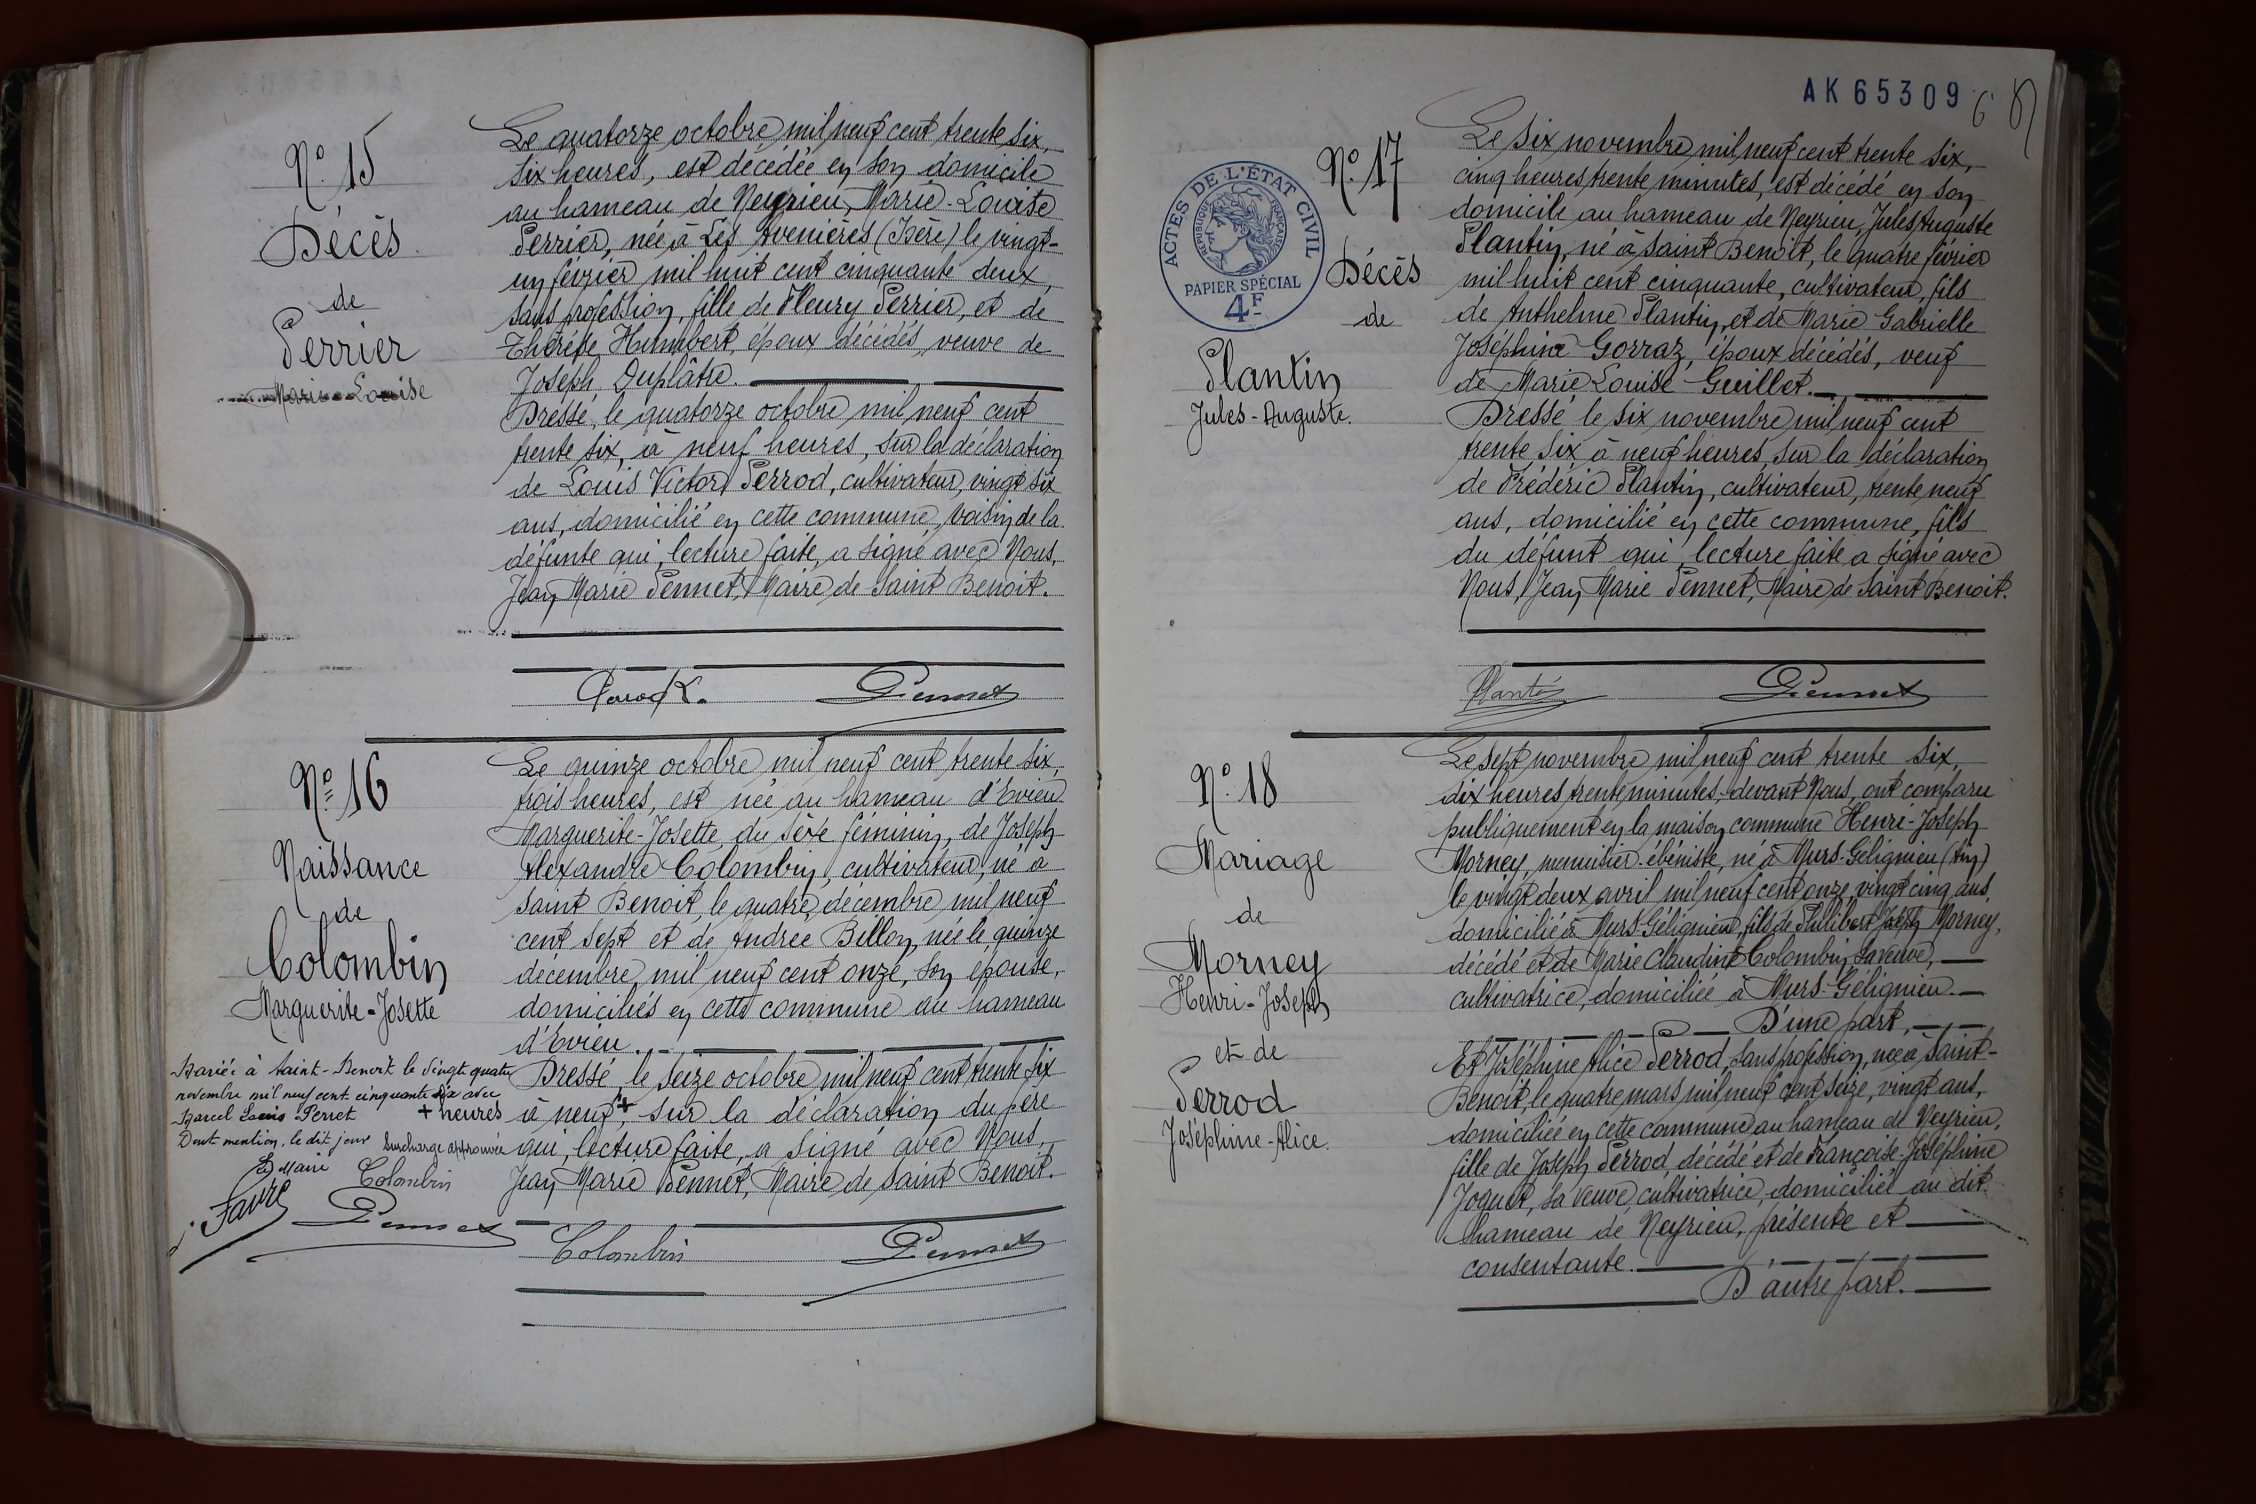 N° 15
Décès
de
Perrier
Marie-Louise
Le quatorze octobre mil neuf cent trente six,
six heures, est décédée en son domicile
au hameau de Neyrieu, Marie-Louise
Perrier, née à Les Avenières (Isère) le vingt-
un février mil huit cent cinquante deux,
sans profession, fille de Fleury Perrier, et de
Thérèse Humbert, époux décédés, veuve de
Joseph Duplâtre.
Dressé, le quatorze octobre mil neuf cent
trente six, à neuf heures, sur la déclaration
de Louis Victor Perrod, cultivateur, vingt six
ans, domicilié en cette commune, voisin de la
défunte qui, lecture faite, a signé avec Nous,
Jean Marie Pennet, Maire de Saint Benoit.
Perrod L. Pennet
N° 16
Naissance
de
Colombin
Marguerite-Josette
Le quinze octobre mil neuf cent trente six,
trois heures, est née au hameau d'Evieu
Marguerite-Josette, du sexe féminin, de Joseph
Alexandre Colombin, cultivateur, né à
Saint Benoit, le quatre décembre mil neuf
cent sept et de Andrée Billon, née le quinze
décembre mil neuf cent onze, son épouse,
domiciliés en cette commune au hameau
d'Evieu.
Dressé, le seize octobre mil neuf cent trente six
à neuf + sur la déclaration du père
qui, lecture faite, a signé avec Nous,
Jean Marie Pennet, Maire de Saint Benoit.
Colombin Pennet
Mariée à Saint-Benoît le vingt quatre
novembre mil neuf cent cinquante six avec
Marcel Louis Perret
Dont mention, le dit jour
Le Maire
J. Favre
+ heures
Surcharge approuvée
Colombin
Pennet
AK 65309
ACTES DE L'ÉTAT CIVIL
RÉPUBLIQUE FRANÇAISE
PAPIER SPÉCIAL
4F
N° 17
Décès
de
Plantin
Jules-Auguste.
Le six novembre mil neuf cent trente six,
cinq heures trente minutes, est décédé en son
domicile au hameau de Neyrieu, Jules Auguste
Plantin, né à Saint Benoît, le quatre février
mil huit cent cinquante, cultivateur, fils
de Anthelme Plantin, et de Marie Gabrielle
Joséphine Gorraz, époux décédés, veuf
de Marie Louise Guillet.
Dressé le six novembre mil neuf cent
trente six à neuf heures, sur la déclaration
de Frédéric Plantin, cultivateur, trente neuf
ans, domicilié en cette commune, fils
du défunt qui, lecture faite a signé avec
Nous, Jean Marie Pennet, Maire de Saint Benoit.
Plantin Pennet
N° 18
Mariage
de
Morney
Henri-Joseph
et de
Perrod
Joséphine-Alice.
Le sept novembre mil neuf cent trente six,
dix heures trente minutes, devant Nous, ont comparu
publiquement en la maison commune Henri-Joseph
Morney, menuisier-ébéniste, né à Murs-Gélignieu (Ain)
le vingt deux avril mil neuf cent onze, vingt cinq ans,
domicilié à Murs-Gélignieu, fils de Philibert Joseph Morney,
décédé et de Marie Claudine Colombin, sa veuve,
cultivatrice, domiciliée à Murs-Gélignieu.
D'une part,
Et Joséphine Alice Perrod, sans profession, née à Saint-
Benoit, le quatre mars mil neuf cent seize, vingt ans,
domiciliée en cette commune au hameau de Neyrieu,
fille de Joseph Perrod, décédé et de Françoise-Joséphine
Joguet, sa veuve, cultivatrice, domiciliée au dit
hameau de Neyrieu, présente et
consentante.
D'autre part.